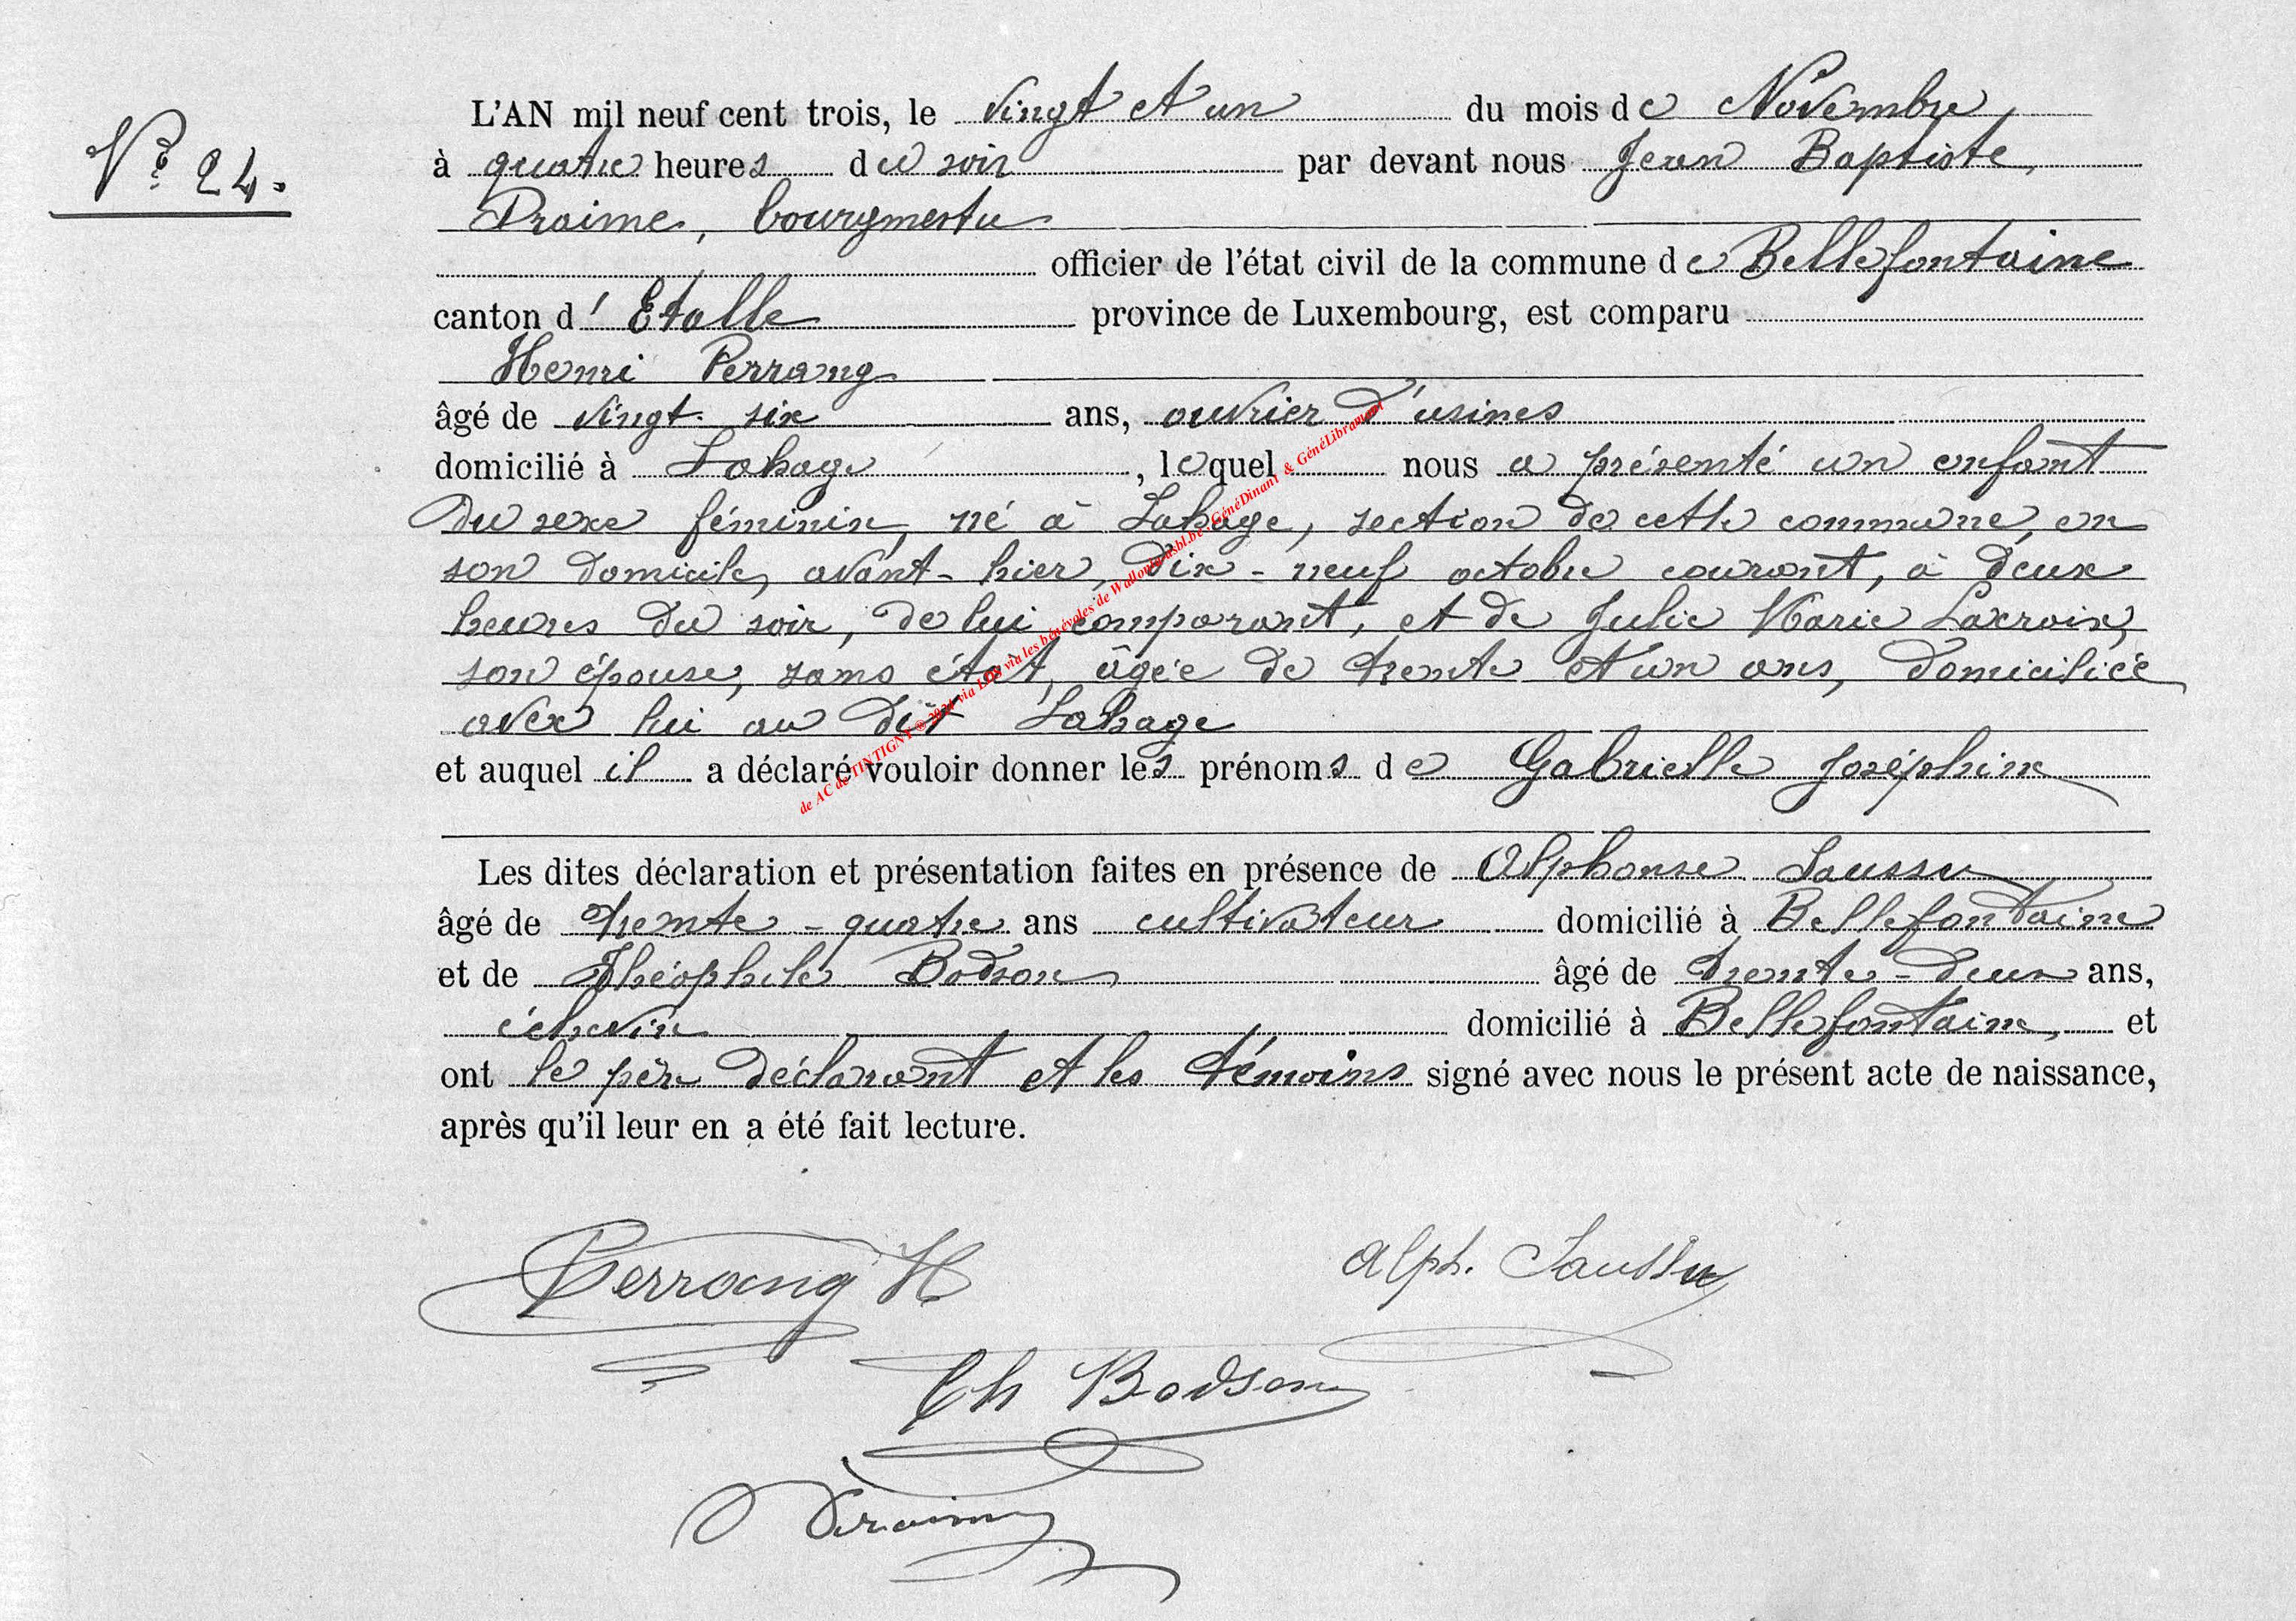 N° 24.
L'AN mil neuf cent trois, le vingt et un du mois de Novembre
à quatre heures du soir par devant nous Jean Baptiste
Praime, bourgmestre
officier de l'état civil de la commune de Bellefontaine
canton d' Etalle province de Luxembourg, est comparu
Henri Perrang
âgé de vingt-six ans, ouvrier d'usines
domicilié à Lahage, lequel nous a présenté un enfant
du sexe féminin, né à Lahage, section de cette commune, en
son domicile, avant-hier, dix-neuf octobre courant, à deux
heures du soir, de lui comparant, et de Julie Marie Lacroix,
son épouse, sans état, âgée de trente et un ans, domiciliée
avec lui au dit Lahage
et auquel il a déclaré vouloir donner les prénoms de Gabrielle Joséphine
Les dites déclaration et présentation faites en présence de Alphonse Saussu
âgé de trente-quatre ans cultivateur domicilié à Bellefontaine
et de Théophile Bodson âgé de trente-deux ans,
échevin domicilié à Bellefontaine, et
ont le père déclarant et les témoins signé avec nous le présent acte de naissance,
après qu'il leur en a été fait lecture.
Perrang H
Alph. Saussu
Th Bodson
Praime
de AC de TINTIGNY © 2024 via LGH via les bénévoles de Wallonia asbl.be GénéDinant & GénéLibramont